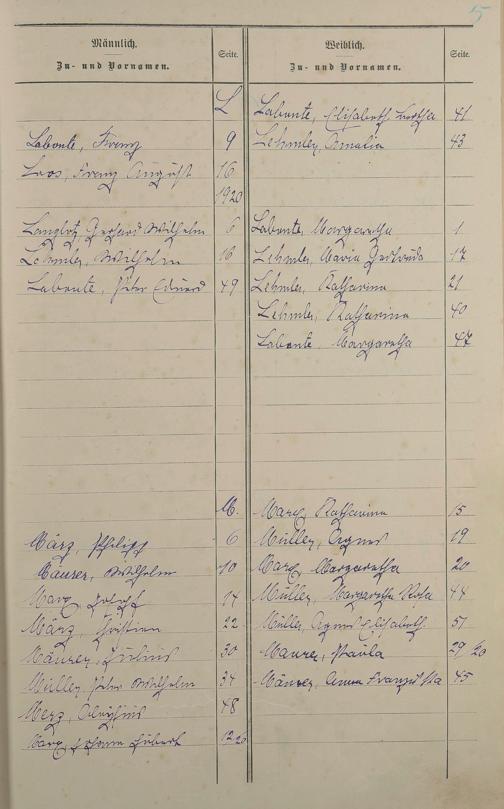 5
Männlich. Seite. Weiblich. Seite.
Zu- und Vornamen. Zu- und Vornamen.
L Labonte, Elisabeth Bertha 41
Labonte, Franz 9 Lehmler, Amalia 43
Loos, Franz August 16
1920
Langlotz, Gerhard Wilhelm 6 Labonte, Margaretha 1
Lehmler, Wilhelm 16 Lehmler, Maria Gertruda 17
Labonte, Peter Eduard 49 Lehmler, Katharina 21
Lehmler, Katharina 40
Labonte, Margaretha 47
M. Marx, Katharina 15
März, Philipp 6 Müller, Agnes 19
Maurer, Wilhelm 10 Marx, Margaretha 20
Marx, Josef 14 Müller, Margaretha Rosa 44
März, Christian 22 Müller, Agnes Elisabeth. 51
Mäurer, Julius 30 Maurer, Paula 29/20
Müller, Peter Wilhelm 34 Mäurer, Anna Franziska 45
Merz, Aloysius 48
Marx, Johann Hubert